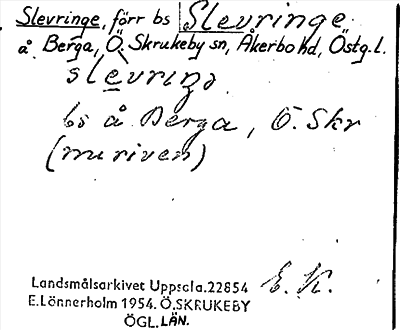 Slevringe, förr bs Slevringe
å Berga, Ö. Skrukeby sn, Åkerbo hd, Östg.l.
slevriŋə
bs å Berga, Ö. Skr
(nu riven)
E. K.
Landsmålsarkivet Uppsala.22854
E.Lönnerholm 1954. Ö.SKRUKEBY
ÖGL.LÄN.